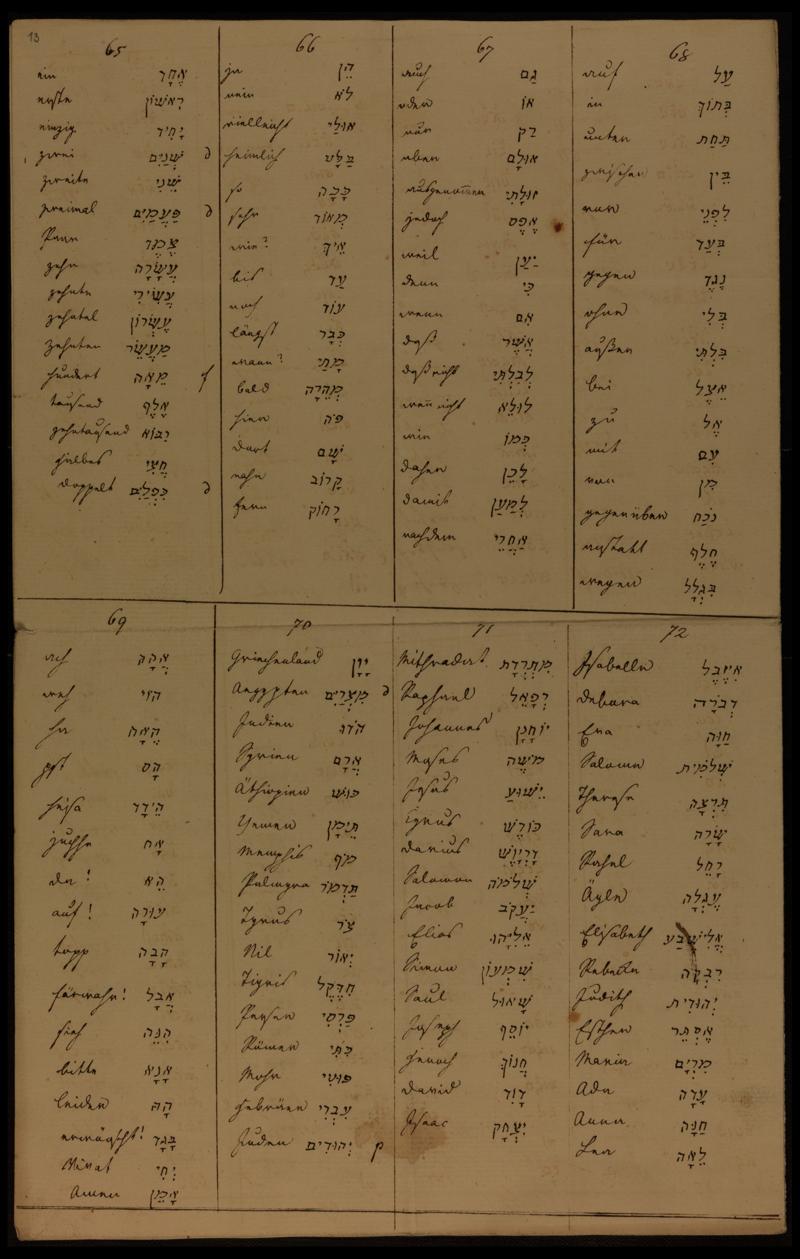 13
65
ein אֶחָד
erste רִאשׁוֹן
einzig יָחִיד
zwei שְׁנַיִם d
zweite שֵׁנִי
zweimal פַּעֲמַיִם d
zehn עֲשָׂרָה
zehnte עֲשִׂירִי
zehntel עִשָּׂרוֹן
Zehnten מַעֲשֵׂר
hundert מֵאָה f
tausend אֶלֶף
zehntausend רִבּוֹא
halbes חֲצִי
doppelt כִּפְלַיִם d
66
ja הֵן
nein לֹא
vielleicht אוּלַי
heimlich בַּלָּט
so כָּכָה
sehr מְאוֹד
wie? אֵיךְ
bis עַד
noch עוֹד
längst כְּבָר
wann? מָתַי
bald מְהֵרָה
hier פֹּה
dort שָׁם
nahe קָרוֹב
fern רָחוֹק
67
auch גַּם
oder אוֹ
nur רַק
aber אוּלָם
ausgenommen זוּלָתִי
jedoch אֶפֶס
weil יַעַן
denn כִּי
wenn אִם
daß אֲשֶׁר
daß nicht לְבִלְתִּי
wenn nicht לוּלֵא
wie כְּמוֹ
daher לָכֵן
damit לְמַעַן
nachdem אַחֲרֵי
68
auf עַל
in בְּתוֹךְ
unter תַּחַת
zwischen בֵּין
vor לִפְנֵי
für בְּעַד
gegen נֶגֶד
ohne בְּלִי
außer בִּלְתִּי
bei אֵצֶל
zu אֶל
mit עִם
von מִן
gegenüber נֹכַח
anstatt חֵלֶף
wegen בִּגְלַל
69
ach אֲהָהּ
weh הוֹי
ha הֶאָח
pst הָס
heisa הֵידָד
juchhe אָח
da! הֵא
auf! עוּרָה
topp הָבָה
fürwahr! אֲבָל
sieh הִנֵּה
bitte אָנָּא
leider הָהּ
Vivat יְחִי
Amen אָמֵן
70
Griechenland יָוָן
Aegypten מִצְרַיִם d
Indien הֹדּוּ
Syrien אֲרָם
Äthiopien כּוּשׁ
Yemen תֵּימָן
Memphis מֹף
Palmyra תַּדְמוֹר
Tyrus צֹר
Nil יְאוֹר
Tigris חִדֶּקֶל
Perser פַּרְסִי
Römer כִּתִּי
Mohr כּוּשִׁי
Hebräer עִבְרִי
Juden יְהוּדִים p
71
Mithradat מִתְרְדָת
Raphael רְפָאֵל
Johannes יוֹחָנָן
Moses מֹשֶׁה
Jesus יֵשׁוּעַ
Cyrus כּוֹרֶשׁ
Darius דָּרְיָוֶשׁ
Salomon שְׁלֹמֹה
Jacob יַעֲקֹב
Elias אֵלִיָּהוּ
Simon שִׁמְעוֹן
Saul שָׁאוּל
Joseph יוֹסֵף
Henoch חֲנוֹךְ
David דָּוִד
Isaac יִצְחָק
72
Isabelle אִיזֶבֶל
Debora דְּבֹרָה
Eva חַוָּה
Salome שְׁלֹמִית
Therese תִּרְצָה
Sara שָׂרָה
Rahel רָחֵל
Ägle עֶגְלָה
Elisabeth אֱלִישֶׁבַע
Rebecka רִבְקָה
Judith יְהוּדִית
Esther אֶסְתֵּר
Maria מִרְיָם
Ada עָדָה
Anna חַנָּה
Lea לֵאָה